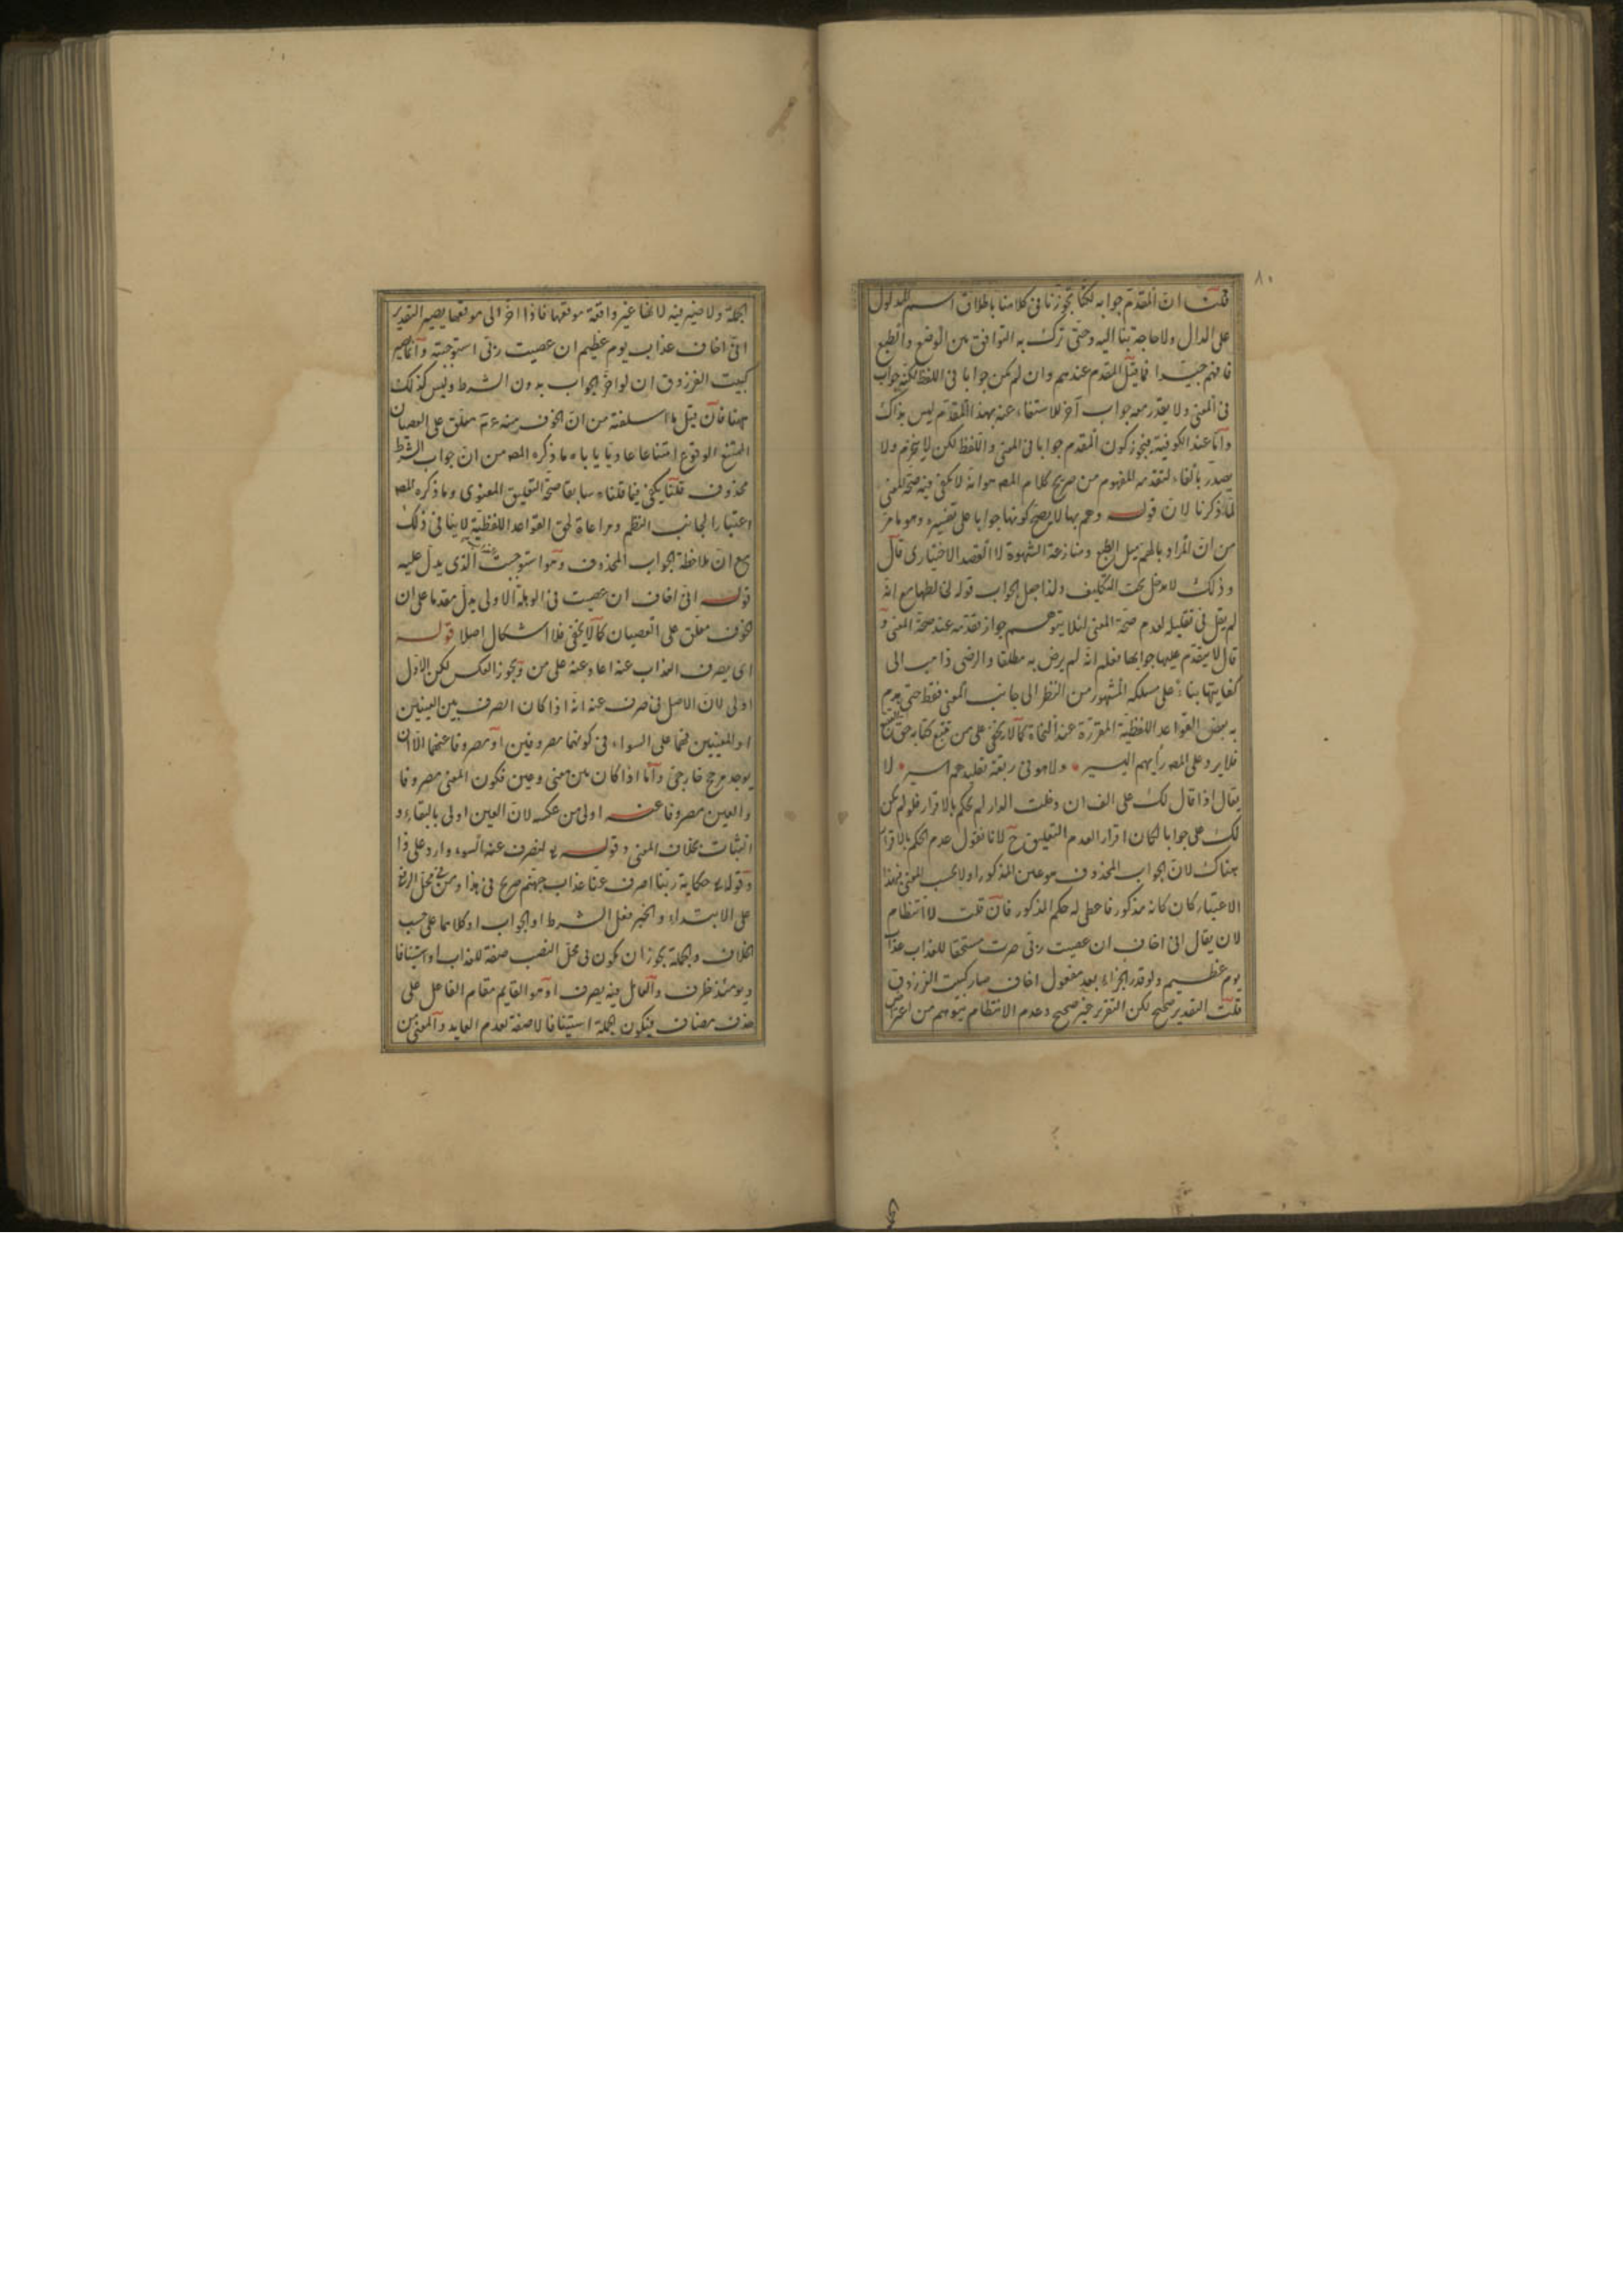 ٨٠
قلت ان المقدم جوابه لكنا تجوزنا فى كلامنا باطلاق اسم المدلول
على الدال ولا حاجة بنا اليه وحتى ترك به التوافق بين الوضع والطبع
فافهم جيدا فما قيل المقدم عندهم وان لم يكن جوابا فى اللفظ لكنه جواب
فى المعنى ولا يقدر معه جواب آخر للاستغناء عنه بهذا المقدم ليس بذاك
واما عند الكوفية فيجوز كون المقدم جوابا فى المعنى واللفظ لكن لا ينجزم ولا
يصدر بالفاء لتقدمه المفهوم من صريح كلام المصـ هو انه لا يكفى فيه صحة المعنى
لما ذكرنا لان قوله وهم بها لا يصح كونها جوابا على تفسيره وهو ما مر
من ان المراد بالهم ميل الطبع ومنازعة الشهوة لا القصد الاختيارى قال
وذلك لا مدخل تحت التكليف ولذا جعل الجواب قوله لخالطها مع انه
لم يقل فى تعليله لعدم صحة المعنى لئلا يتوهم جواز تقدمه عند صحة المعنى و
قال لا يتقدم عليها جوابها فعلم انه لم يرض به مطلقا والرضى ذاهب الى
كفايتها بناء على مسلكه المشهور من النظر الى جانب المعنى فقط حتى يهدم
به بعض القواعد اللفظية المقررة عند النحاة كما لا يخفى على من تتبع كتابه حق التتبع
فلا يرد على المصـ رأيهم اليسير ولا هو فى ربقة تقليدهم اسير لا
يقال اذا قال لك على الف ان دخلت الدار لم يحكم بالاقرار فلو لم يكن
لك على جوابا لكان اقرارا لعدم التعليق ح لانا نقول عدم الحكم بالاقرار
هناك لان الجواب المحذوف هو عين المذكور اولا بحسب المعنى فبهذا
الاعتبار كان كانه مذكور فاعطى له حكم المذكور فان قلت لا انتظام
لان يقال انى اخاف ان عصيت ربى صرت مستحقا للعذاب عذاب
يوم عظيم ولو قدر الجزاء بعد مفعول اخاف صار كبيت الفرزدق
قلت التقدير صحيح لكن التقرير غير صحيح وعدم الانتظام يتوهم من اعتراض
الجملة ولا ضير فيه لانها غير واقعة موقعها فاذا اخر الى موقعها يصير التقدير
انى اخاف عذاب يوم عظيم ان عصيت ربى استوجبته وانما يصير
كبيت الفرزدق ان لو اخر الجواب بدون الشرط وليس كذلك
ههنا فان قيل ما اسلفته من ان الخوف منه معلق على العصيان
الممتنع الوقوع امتناعا عاديا ياباه ما ذكره المصـ من ان جواب الشرط
محذوف قلنا يكفى فيما قلناه سابقا صحة التعليق المعنوى وما ذكره المصـ
اعتبارا لجانب النظم ومراعاة لحق القواعد اللفظية لا ينافى ذلك
مع ان ملاحظة الجواب المحذوف وهو استوجبت الذى يدل عليه
قوله انى اخاف ان عصيت فى الوهلة الاولى يدل مقدما على ان
الخوف معلق على العصيان كما لا يخفى فلا اشكال اصلا قوله
اى يصرف العذاب عنه اعاد عنه على من ويجوز العكس لكن الاول
اولى لان الاصل فى صرف عنه انه اذا كان الصرف بين العينين
او المعنيين فهما على السواء فى كونهما مصروفين او مصروفا عنهما الا ان
يوجد مرجح خارجى واما اذا كان بين معنى وعين فكون المعنى مصروفا
والعين مصروفا عنه اولى من عكسه لان العين اولى بالبقاء و
الثبات بخلاف المعنى وقوله لنصرف عنه السوء وارد على ذا
وقوله حكاية ربنا اصرف عنا عذاب جهنم صريح فى هذا ومن فى محل الرفع
على الابتداء والخبر فعل الشرط او الجواب او كلاهما على حسب
الخلاف والجملة يجوز ان يكون فى محل النصب صفة للعذاب او استينافا
ويومئذ ظرف والعامل فيه يصرف او هو القايم مقام الفاعل على
حذف مضاف فيكون الجملة استينافا لا صفة لعدم العايد والمعنى من